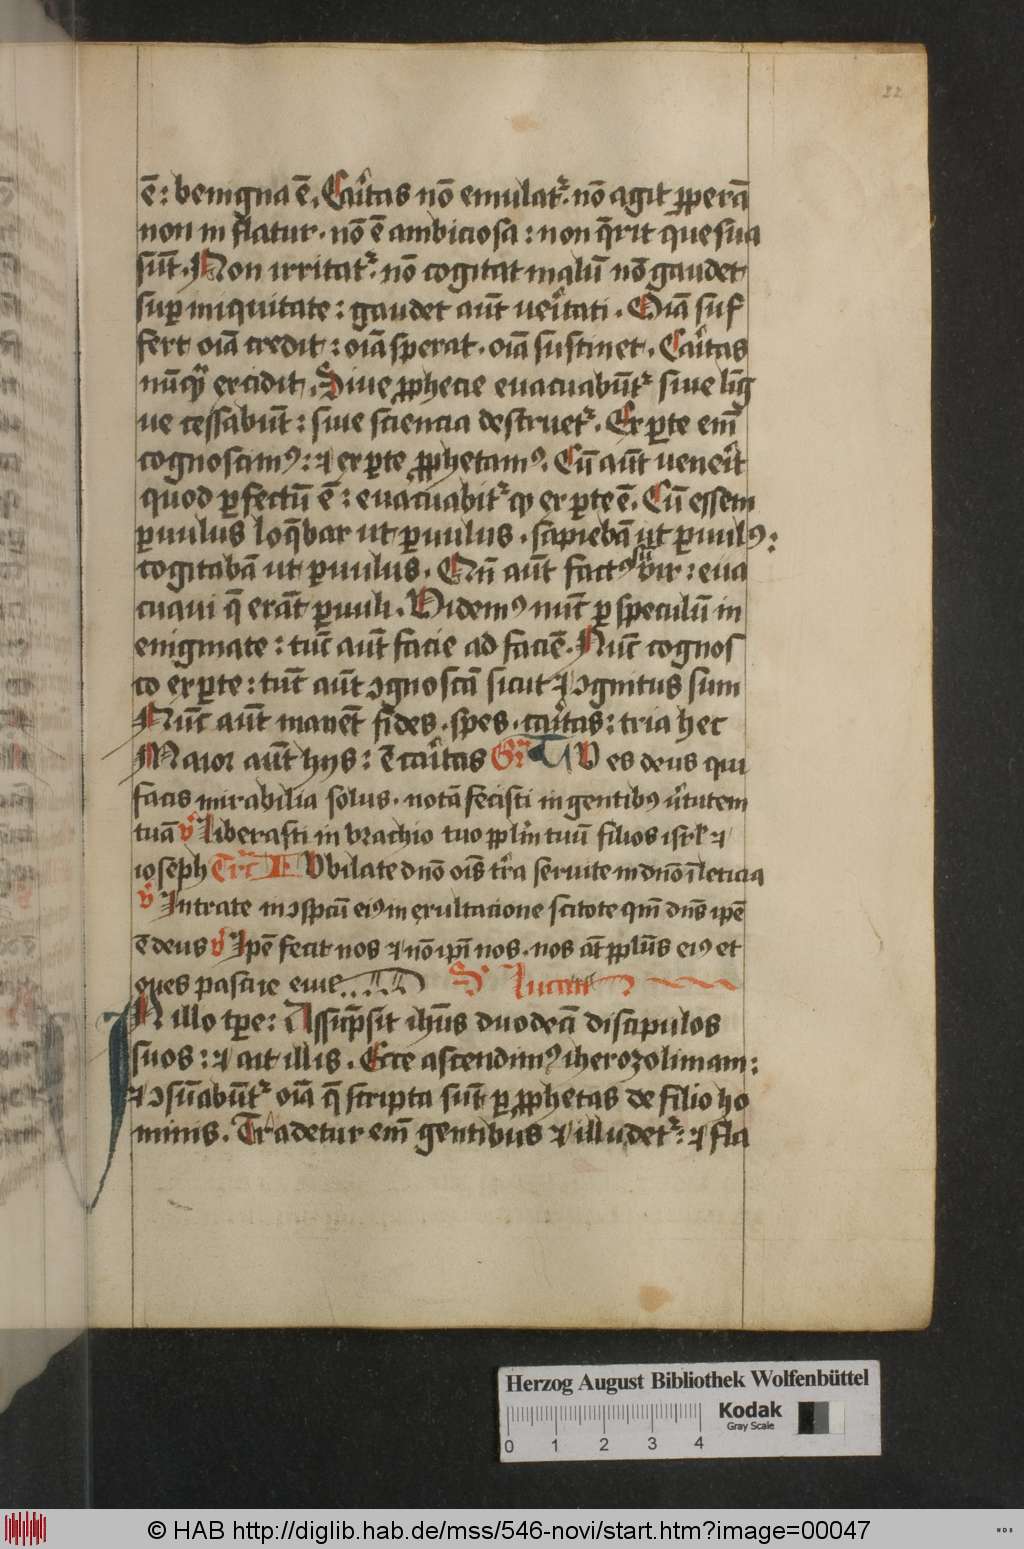 22
ē: benigna ē. Caritas nō emulat᷑. nō agit ꝑperā
non inflatur. nō ē ambiciosa: non q̄rit que sua
sūt. Non irritat᷑. nō cogitat malū nō gaudet
suꝑ iniquitate: gaudet aūt ueritati. Oīa suf
fert oīa credit: oīa sperat. oīa sustinet. Caritas
nūꝙ excidit. Siue ꝓphecie euacuabūt᷑ siue līg
ue cessabūt: siue sciencia destruet᷑. Ex ꝑte eni᷑
cognoscimꝰ: ⁊ ex ꝑte ꝓphetamꝰ. Cū aūt uenerit
quod ꝑfectū ē: euacuabit᷑ ꝙ ex ꝑte ē. Cū essem
ꝑuulus loq̄bar ut ꝑuulus. sapiebā ut ꝑuulꝰ:
cogitabā ut ꝑuulus. Qn̄ aūt factꝰ sū vir: eua
cuaui q̄ erāt ꝑuuli. Videmꝰ nūc ꝑ speculū in
enigmate: tūc aūt facie ad faciē. Nūc cognos
co ex ꝑte: tūc aūt ꝯgnoscā sicut ⁊ ꝯgnitus sum
Nūc aūt manēt fides. spes. caritas: tria hec
Maior aūt hijs: ē caritas Gr̄ TV es deus qui
facis mirabilia solus. notā fecisti in gentibꝰ u᷑tutem
tuā v᷑ Liberasti in brachio tuo pplm̄ tuū filios isrl̄ ⁊
ioseph Tr̄c IVbilate dn̄o oīs t᷑ra seruite in dn̄o ī leticia
v᷑ Intrate in ꝯspc̄u eiꝰ in exultacione scitote qm̄ dn̄s ip̄e
ē deus v᷑ Ip̄e fecit nos ⁊ nō ip̄i nos. nos āt ppl̄us eiꝰ et
oues pascue eius S᷑ lucam
IN illo tp̄e: Assūpsit ih̄us duodecī discipulos
suos: ⁊ ait illis. Ecce ascendimꝰ iherozolimam:
⁊ ꝯsūabūt᷑ oīa q̄ scripta sūt ꝑ ꝓphetas de filio ho
minis. Tradetur eni᷑ gentibus ⁊ illudet᷑: ⁊ fla
Herzog August Bibliothek Wolfenbüttel
0 1 2 3 4
Kodak
Gray Scale
© HAB http://diglib.hab.de/mss/546-novi/start.htm?image=00047